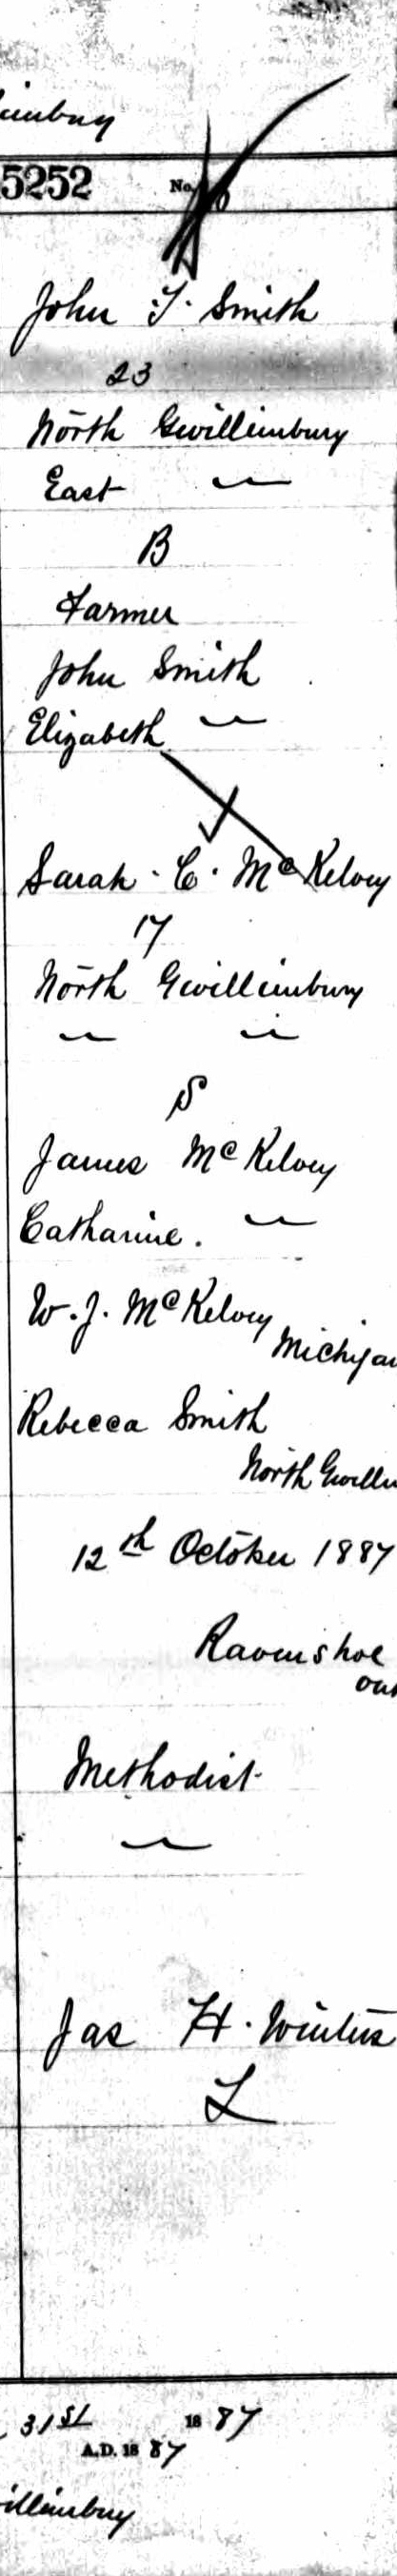 5252 No.
John T. Smith
23
North Gwillimbury
East "
B
Farmer
John Smith
Elizabeth "
Sarah. C. McKelvey
17
North Gwillimbury
" "
S
James McKelvey
Catharine. "
W. J. McKelvey
Michigan
Rebecca Smith
North Gwillim
12th October 1887
Ravenshoe
Ont
Methodist
"
Jas H. Winters
L
31st 1887
A.D. 1887
illimbury